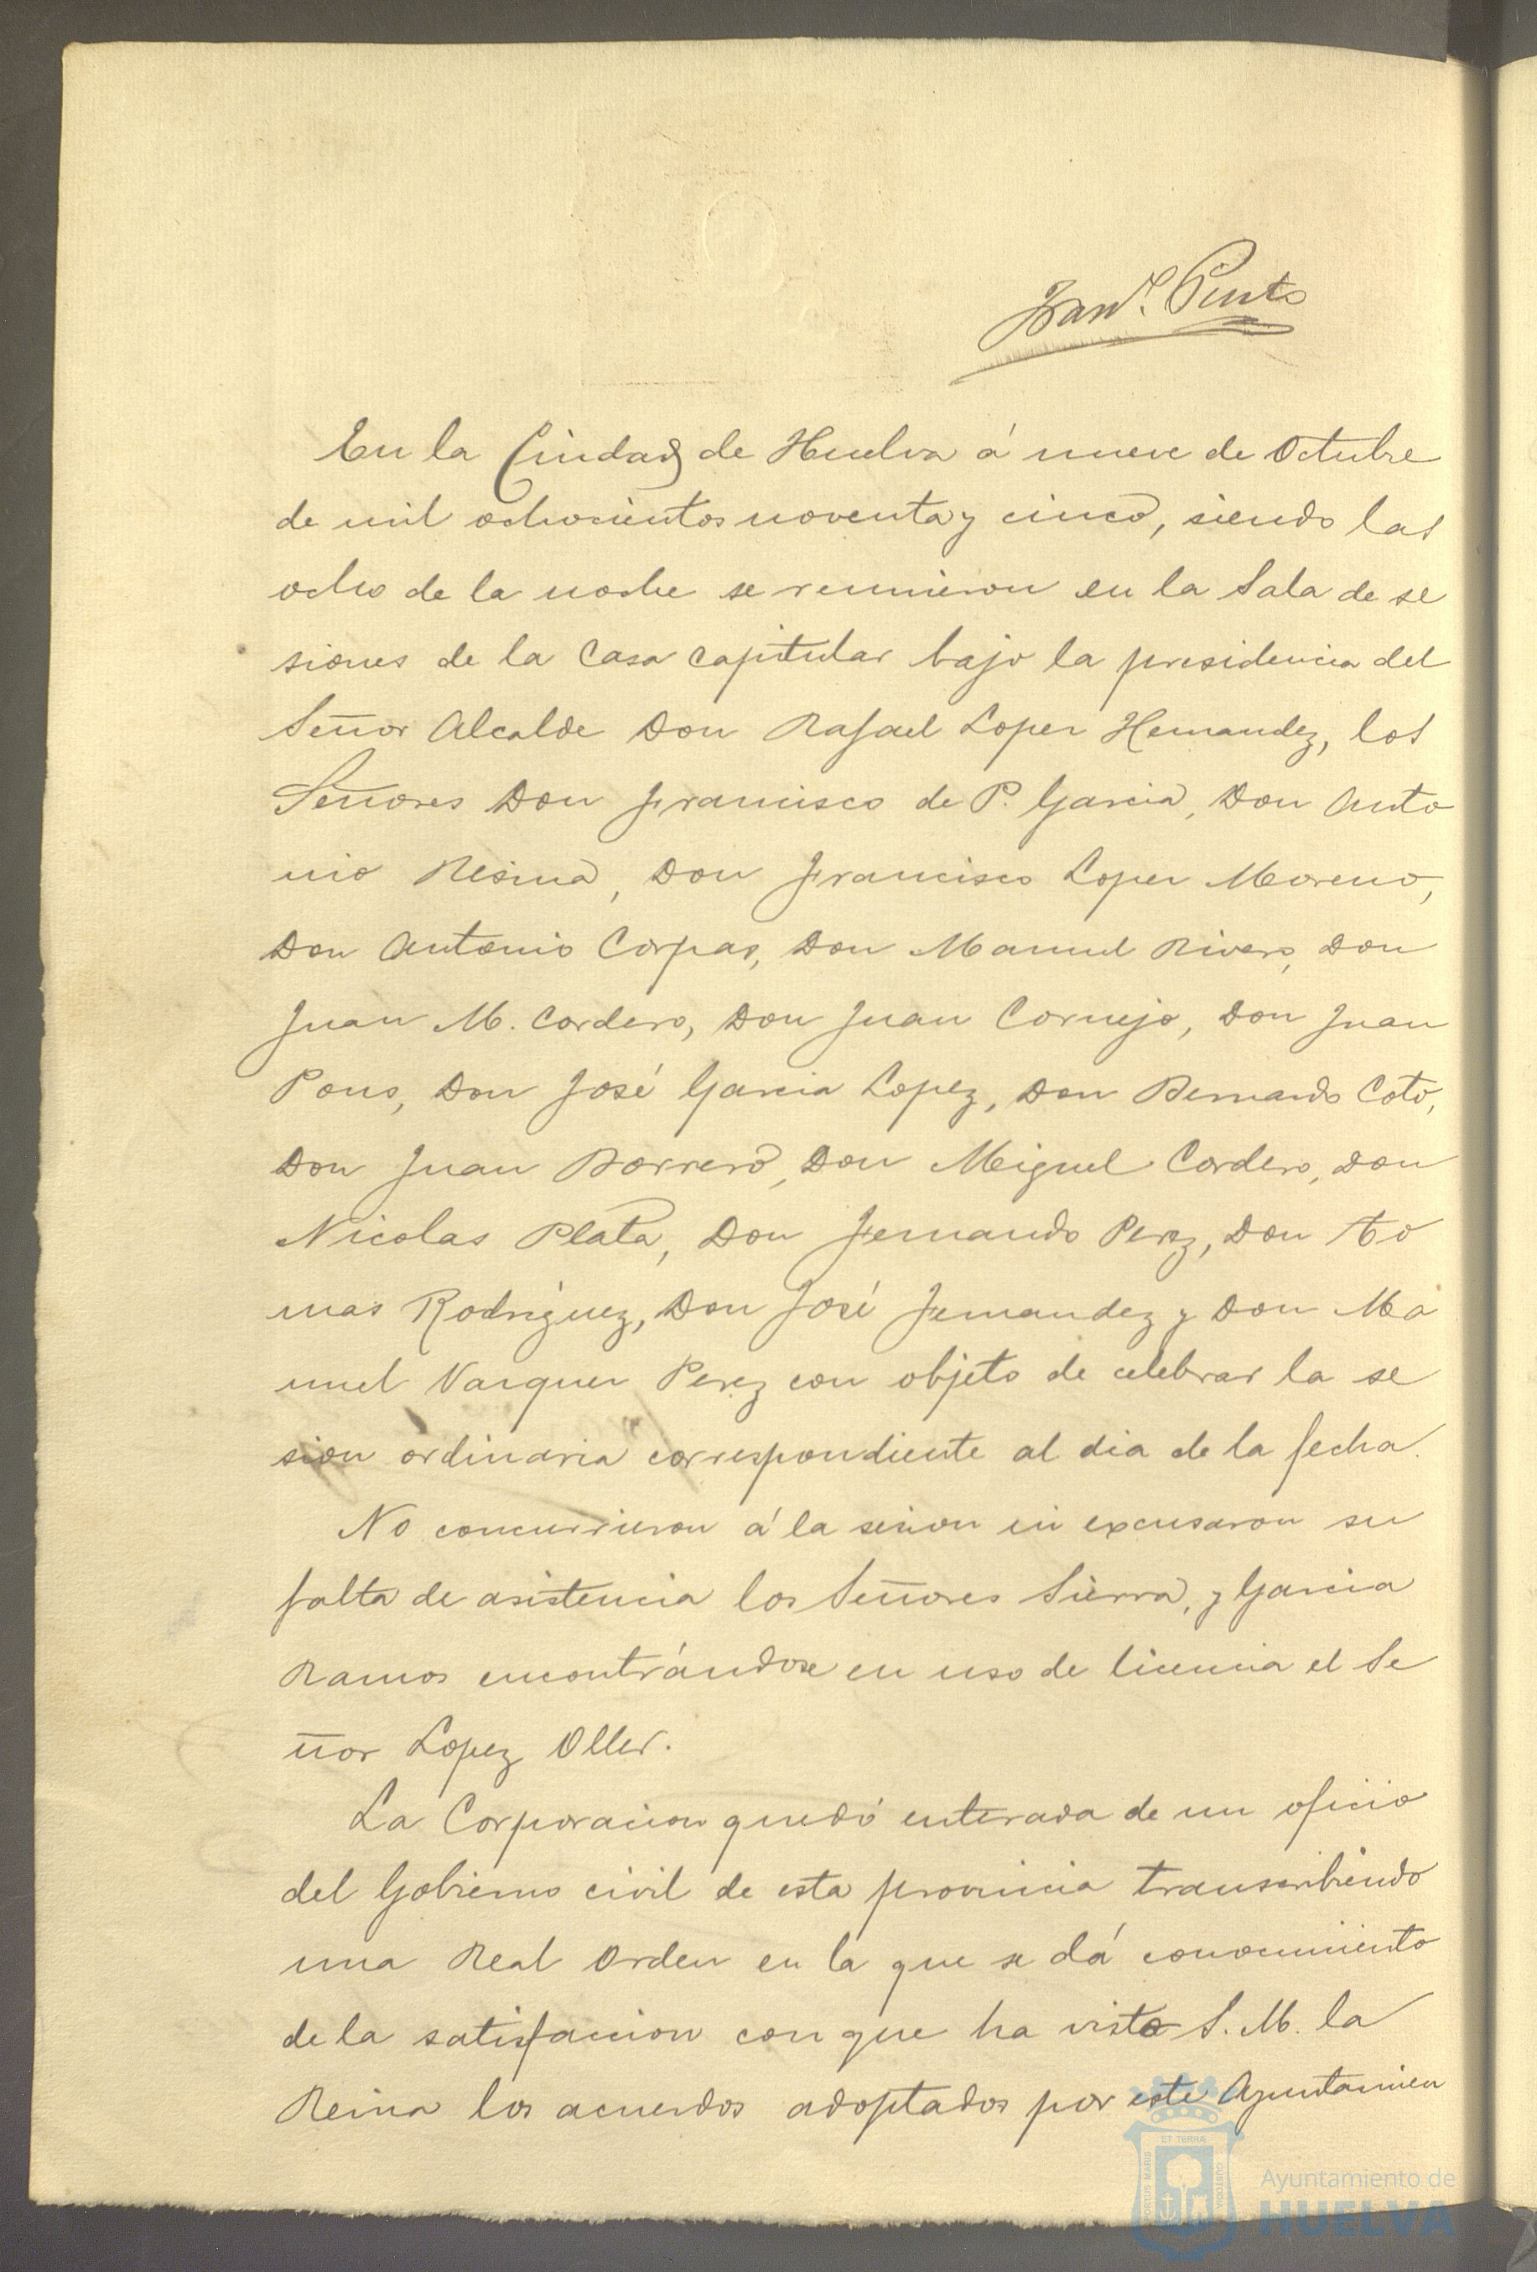 Fran.º Pinto
En la Ciudad de Huelva á nueve de Octubre
de mil ochocientos noventa y cinco, siendo las
ocho de la noche se reunieron en la Sala de se
siones de la Casa Capitular bajo la presidencia del
Señor Alcalde Don Rafael Lopez Hernandez, los
Señores Don Francisco de P. Garcia, Don Anto
nio Resina, Don Francisco Lopez Moreno,
Don Antonio Corpas, Don Manuel Rivero, Don
Juan M. Cordero, Don Juan Cornejo, Don Juan
Pons, Don José Garcia Lopez, Don Bernardo Coto,
Don Juan Borrero, Don Miguel Cordero, Don
Nicolas Plata, Don Fernando Perez, Don To
mas Rodriguez, Don José Fernandez y Don Ma
nuel Vazquez Perez con objeto de celebrar la se
sion ordinaria correspondiente al dia de la fecha.
No concurrieron á la sesion ni excusaron su
falta de asistencia los Señores Sierra, y Garcia
Ramos encontrándose en uso de licencia el Se
ñor Lopez Oller.
La Corporacion quedó enterada de un oficio
del Gobierno civil de esta provincia transcribiendo
una Real Orden en la que se dá conocimiento
de la satisfaccion con que ha visto S. M. la
Reina los acuerdos adoptados por este Ayuntamien
ET TERRÆ
PORTUS MARIS
CUSTODIA
Ayuntamiento de
HUELVA